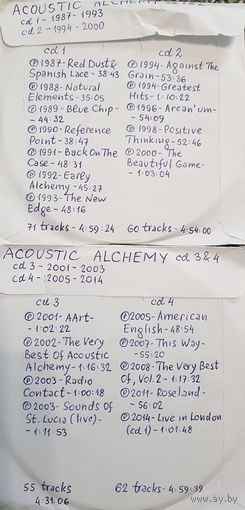 ACOUSTIC ALCHEMY
cd 1 - 1987-1993
cd 2 - 1994 - 2000
cd 1
℗ 1987- Red Dust &
Spanish Lace - 38:43
℗ 1988- Natural
Elements - 35:05
℗ 1989- Blue Chip -
- 44:32
℗ 1990- Reference
Point - 38:47
℗ 1991- Back On The
Case - 48:31
℗ 1992- Early
Alchemy - 45:27
℗ 1993- The New
Edge - 48:16
71 tracks - 4:59:24
cd 2
℗ 1994- Against The
Grain - 53:36
℗ 1994- Greatest
Hits - 1:10:22
℗ 1996- Arcan'um -
- 54:09
℗ 1998- Positive
Thinking - 52:46
℗ 2000- The
Beautiful Game -
- 1:03:04
60 tracks - 4:54:00
ACOUSTIC ALCHEMY cd 3 & 4
cd 3 - 2001 - 2003
cd 4 - 2005 - 2014
cd 3
℗ 2001- AArt -
- 1:02:22
℗ 2002- The Very
Best Of Acoustic
Alchemy - 1:16:32
℗ 2003- Radio
Contact - 1:00:18
℗ 2003- Sounds Of
St. Lucia (live) -
- 1:11:53
55 tracks
4:31:06
cd 4
℗ 2005- American
English - 48:54
℗ 2007- This Way -
- 55:20
℗ 2008- The Very Best
Of, Vol. 2 - 1:17:32
℗ 2011- Roseland -
- 56:02
℗ 2014- Live in London
(cd 1) - 1:01:48
62 tracks - 4:59:39
ay.by